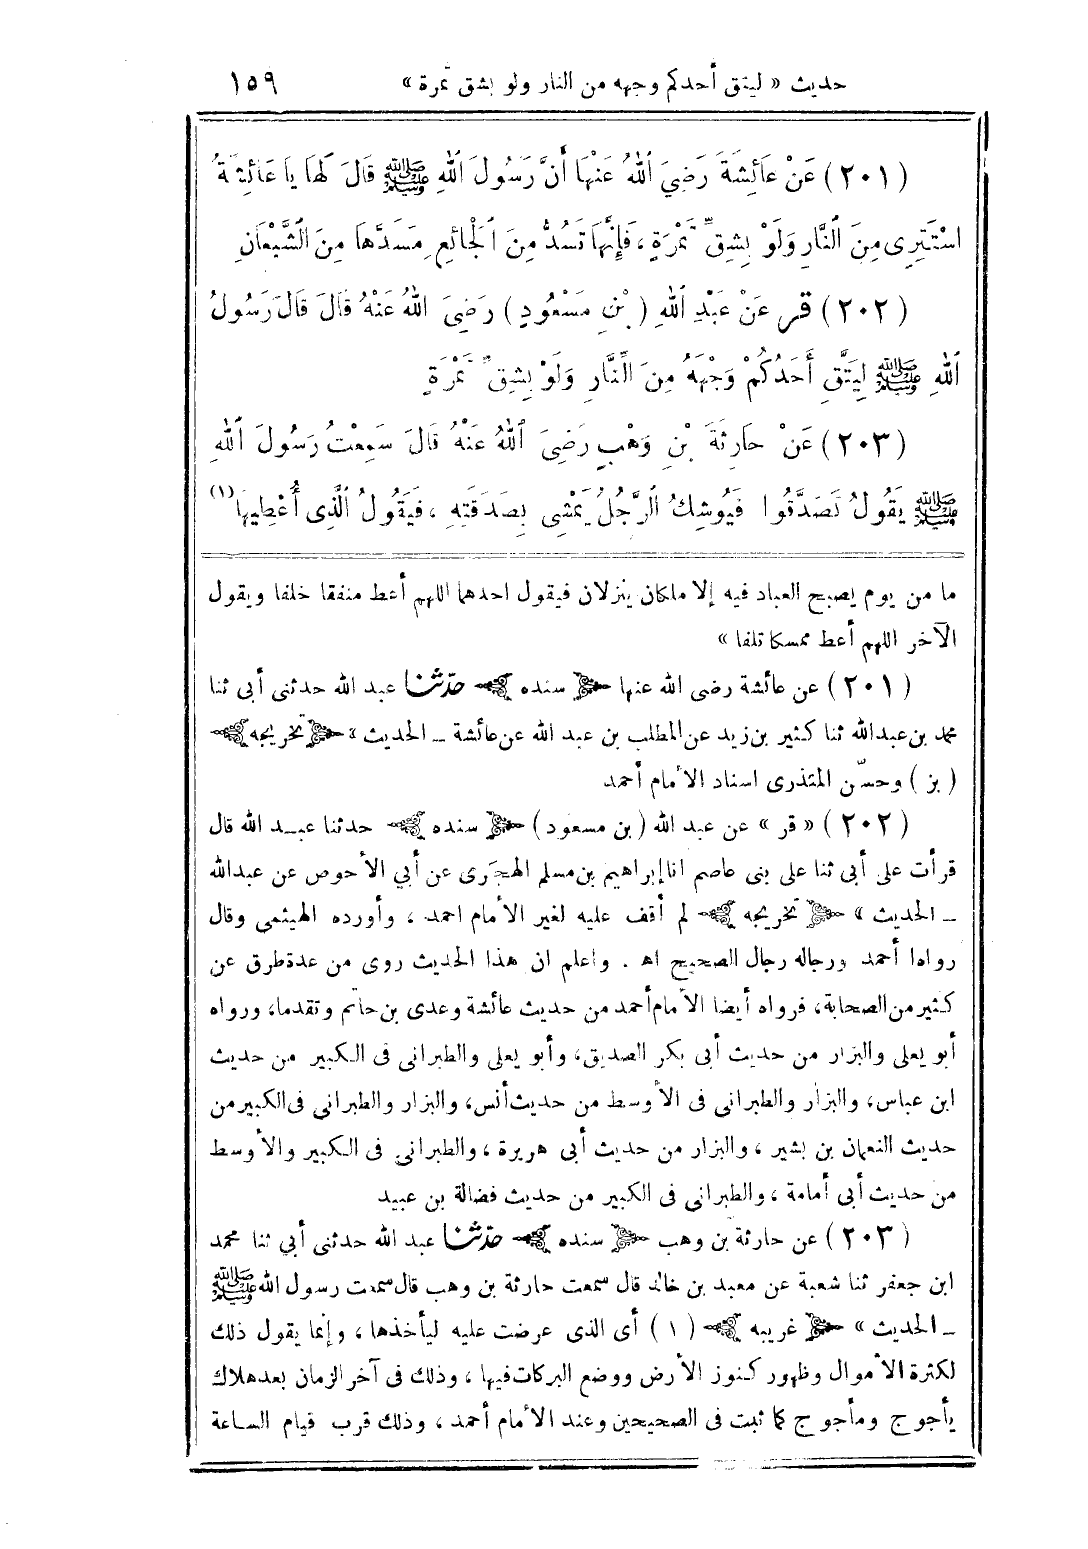 حديث « ليتق أحدكم وجهه من النار ولو بشق تمرة » ١٥٩
(٢٠١) عَنْ عَائِشَةَ رَضِيَ اللهُ عَنْهَا أَنَّ رَسُولَ اللهِ ﷺ قَالَ لَهَا يَا عَائِشَةُ
اسْتَتِرِى مِنَ النَّارِ وَلَوْ بِشِقِّ تَمْرَةٍ ، فَإِنَّهَا تَسُدُّ مِنَ الْجَائِعِ مَسَدَّهَا مِنَ الشَّبْعَانِ
(٢٠٢) قر عَنْ عَبْدِ اللهِ (بْنِ مَسْعُودٍ) رَضِيَ اللهُ عَنْهُ قَالَ قَالَ رَسُولُ
اللهِ ﷺ لِيَتَّقِ أَحَدُكُمْ وَجْهَهُ مِنَ النَّارِ وَلَوْ بِشِقِّ تَمْرَةٍ
(٢٠٣) عَنْ حَارِثَةَ بْنِ وَهْبٍ رَضِيَ اللهُ عَنْهُ قَالَ سَمِعْتُ رَسُولَ اللهِ
ﷺ يَقُولُ تَصَدَّقُوا فَيُوشِكُ الرَّجُلُ يَمْشِى بِصَدَقَتِهِ ، فَيَقُولُ الَّذِى أُعْطِيهَا (١)
ما من يوم يصبح العباد فيه إلا ملكان ينزلان فيقول احدهما اللهم أعط منفقا خلفا ويقول
الآخر اللهم أعط ممسكا تلفا »
(٢٠١) عن عائشة رضى الله عنها ﴿ سنده ﴾ حدّثنا عبد الله حدثنى أبى ثنا
محمد بن عبدالله ثنا كثير بن زيد عن المطلب بن عبد الله عن عائشة ــ الحديث » ﴿ تخريجه ﴾
(بز) وحسّن المتذرى اسناد الأمام أحمد
(٢٠٢) « قر » عن عبد الله (بن مسعود) ﴿ سنده ﴾ حدثنا عبد الله قال
قرأت على أبى ثنا على بنى عاصم انا إبراهيم بن مسلم الهجَرى عن أبي الأحوص عن عبدالله
ــ الحديث » ﴿ تخريجه ﴾ لم أقف عليه لغير الأمام احمد ، وأورده الهيثمى وقال
رواه أحمد ورجاله رجال الصحيح اه . واعلم ان هذا الحديث روى من عدة طرق عن
كثير من الصحابة، فرواه أيضا الأمام أحمد من حديث عائشة وعدى بن حاتم وتقدما، ورواه
أبو يعلى والبزار من حديث أبى بكر الصديق، وأبو يعلى والطبرانى فى الكبير من حديث
ابن عباس، والبزار والطبرانى فى الأوسط من حديث أنس، والبزار والطبرانى فى الكبير من
حديث النعمان بن بشير ، والبزار من حديث أبى هريرة ، والطبرانى فى الكبير والأوسط
من حديث أبى أمامة ، والطبرانى فى الكبير من حديث فضالة بن عبيد
(٢٠٣) عن حارثة بن وهب ﴿ سنده ﴾ حدّثنا عبد الله حدثنى أبي ثنا محمد
ابن جعفر ثنا شعبة عن معبد بن خالد قال سمعت حارثة بن وهب قال سمعت رسول الله ﷺ
ــ الحديث » ﴿ غريبه ﴾ (١) أى الذى عرضت عليه ليأخذها ، وإنما يقول ذلك
لكثرة الأموال وظهور كنوز الأرض ووضع البركات فيها ، وذلك فى آخر الزمان بعد هلاك
يأجوج ومأجوج كما ثبت فى الصحيحين وعند الأمام أحمد ، وذلك قرب قيام الساعة